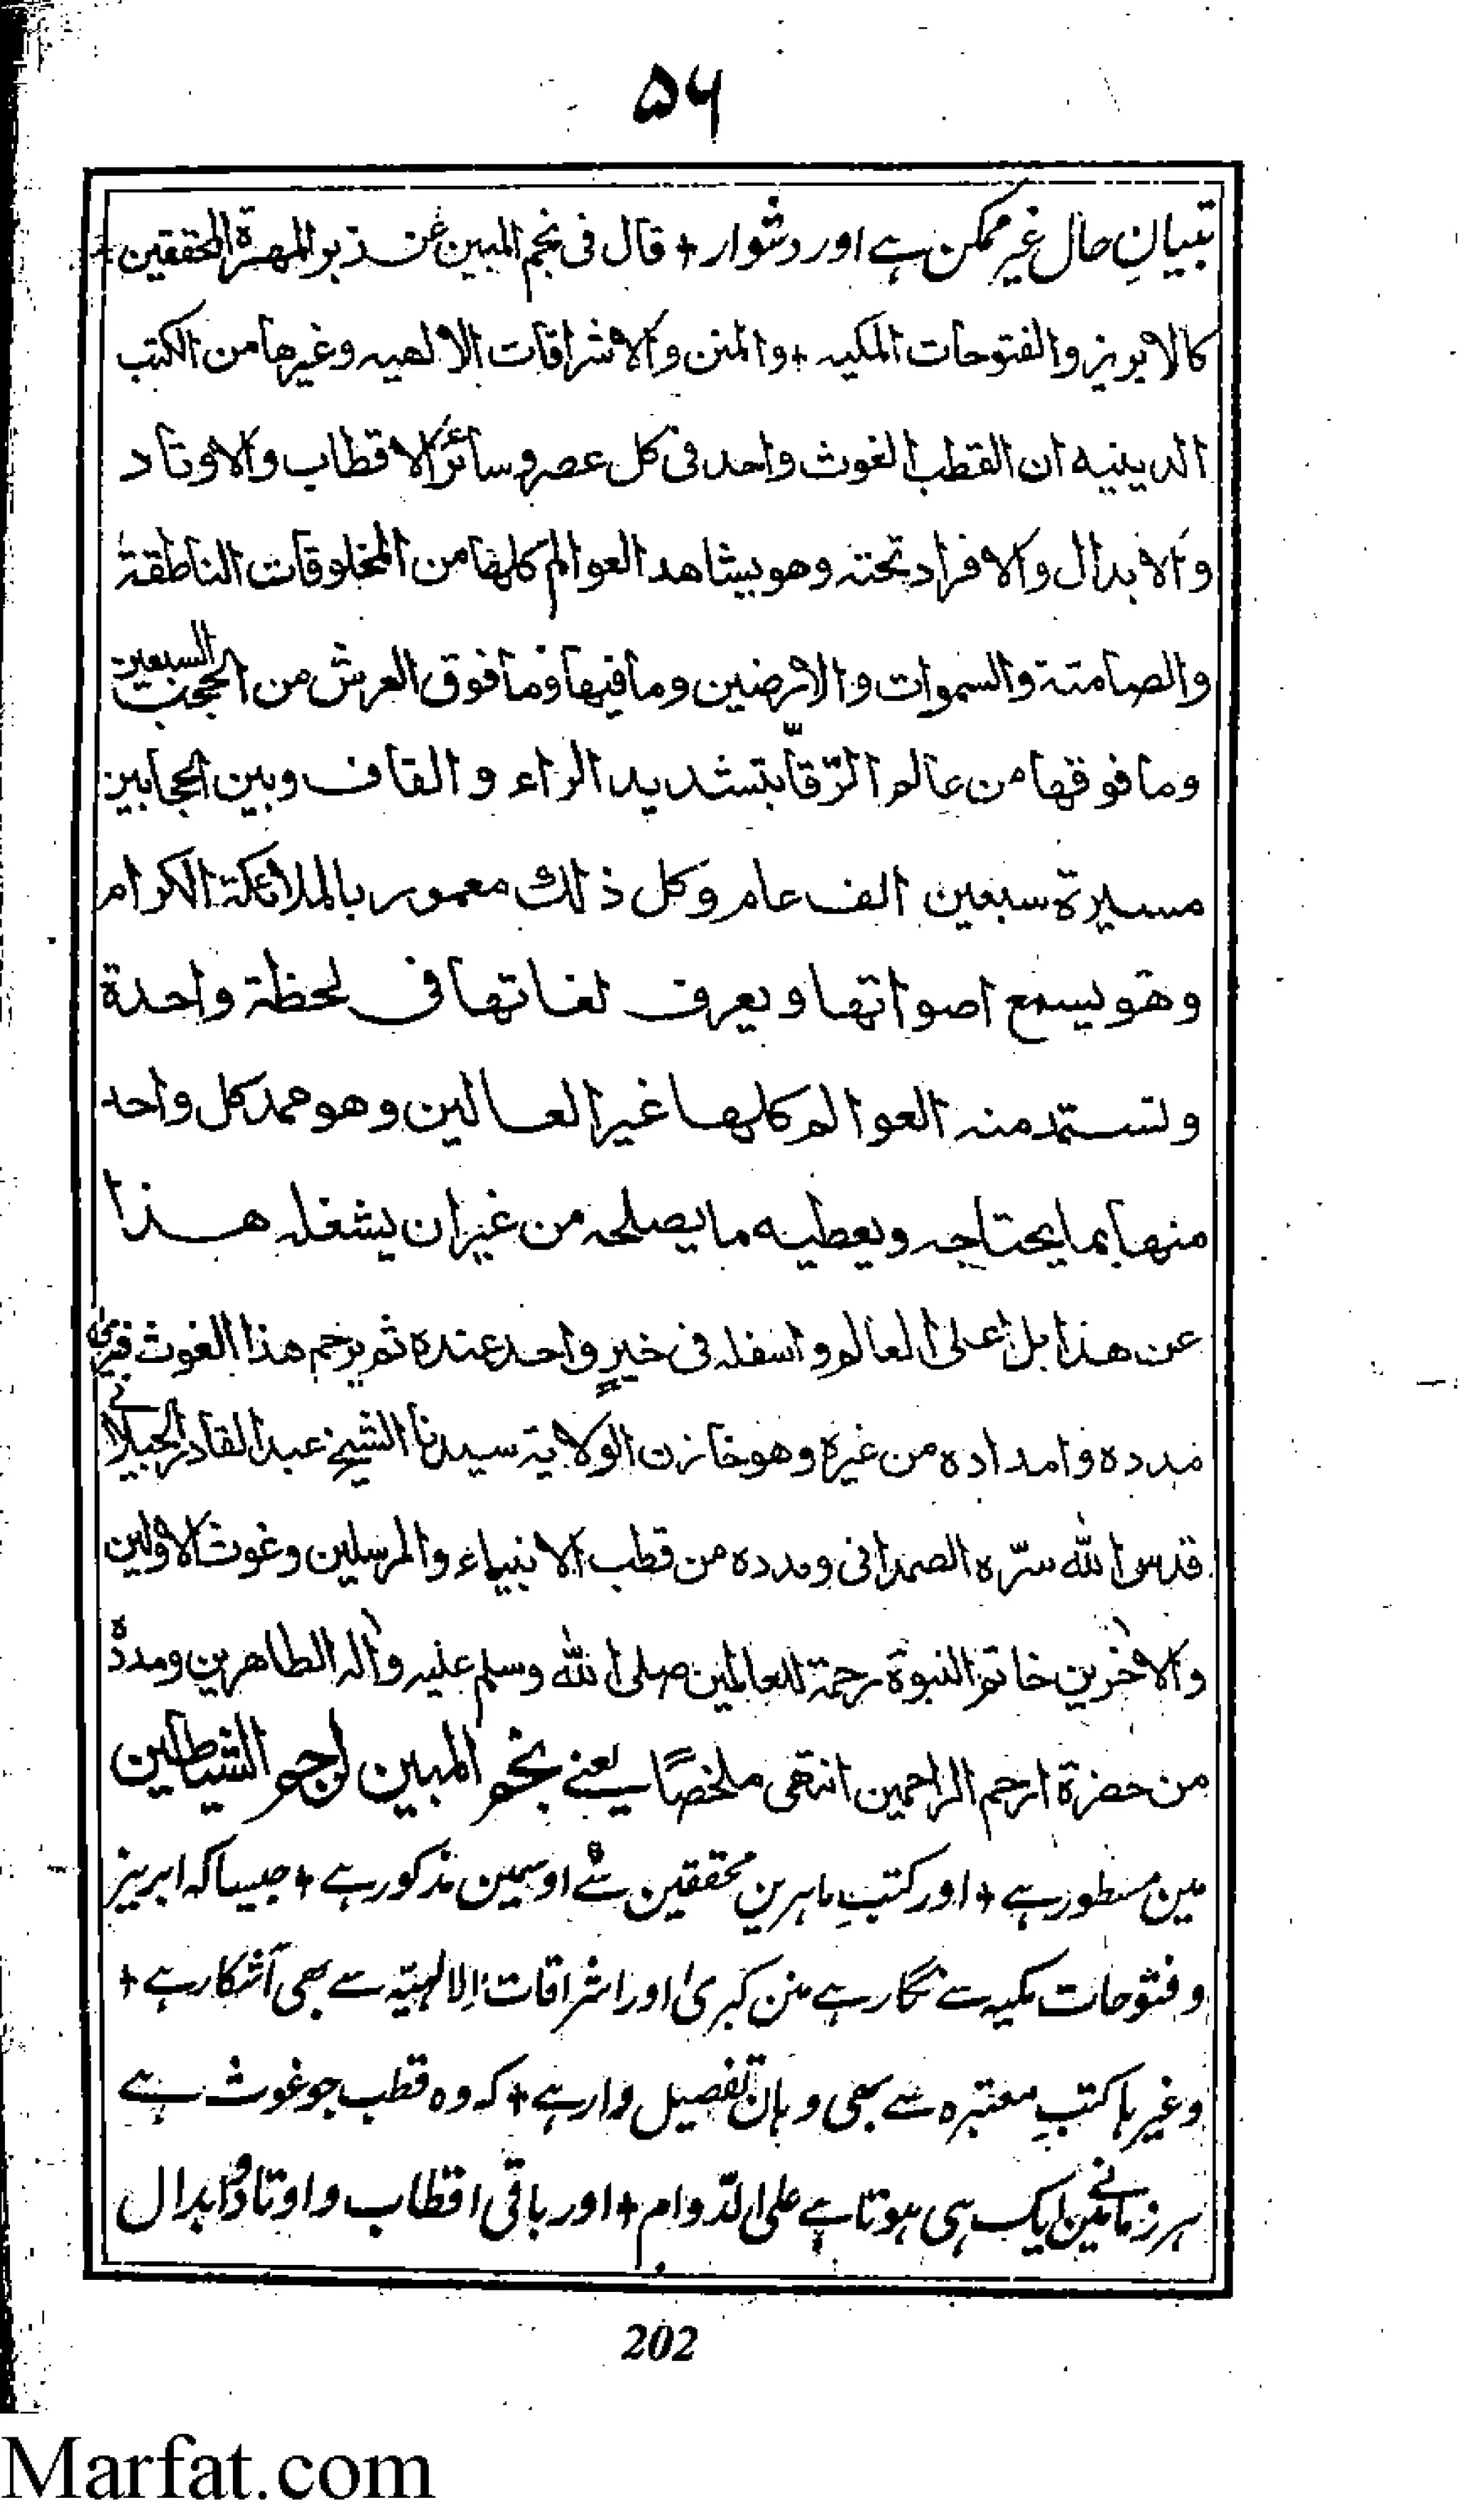 ۵۶
تبیانِ حال غیر ممکن ہے اور دشوار + قال فی نجم المبین عن زبر المهرة المحققین +
کالابریز والفتوحات المکیہ + والمنن والاشراقات الالھیہ وغیرھا من الکتب
الدینیہ ان القطب الغوث واحد فی کل عصر وسائر الاقطاب والاوتاد
والابدال والافراد تحتہ وھو یشاھد العوالم کلھا من المخلوقات الناطقة
والصامتة والسموات والارضین وما فیھا وما فوق العرش من الحجب السبعین
وما فوقھا من عالم الرّقّا بتشدید الراء والقاف وبین الحجابین
مسیرة سبعین الف عام وکل ذلك معمور بالملائکة الکرام
وھو یسمع اصواتھا ویعرف لغاتھا فی لحظة واحدة
وتستمد منہ العوالم کلھا غیر العالین وھو ممد کل واحد
منھا بما یحتاجہ ویعطیہ ما یصلحہ من غیر ان یشغلہ ھذا
عن ھذا بل اعلی العالم واسفلہ فی خیرٍ واحد عندہ ثم یرحم ھذا الغوث فیری
مددہ وامدادہ من غیرہ وھو خازن الولایة سیدنا الشیخ عبد القادر الجیلانے
قدس اللہ سرّہ الصمدانی ومددہ من قطب الانبیاء والمرسلین وغوث الاولین
والاخرین خاتم النبوة رحمة للعالمین صلی اللہ وسلم علیہ واٰلہ الطاھرین ومددہ
من حضرة ارحم الراحمین انتھی ملخصًا یعنے نجم المبین لرجم الشیاطین
مین مسطور ہے + اور کتبِ ماہرین محققین سے اوسمین مذکور ہے + جیسا کہ ابریز
و فتوحات مکیہ سے نگار ہے منن کبریٰ اور اشراقات الالہیّہ سے بھی آشکار ہے +
وغیرہا کتبِ معتبرہ سے بھی وہان تفصیل وار ہے + کہ وہ قطب جو غوث ہے
ہر زمانے مین ایک ہی ہوتا ہے علی الدّوام + اور باقی اقطاب و اوتاد و ابدال
202
Marfat.com